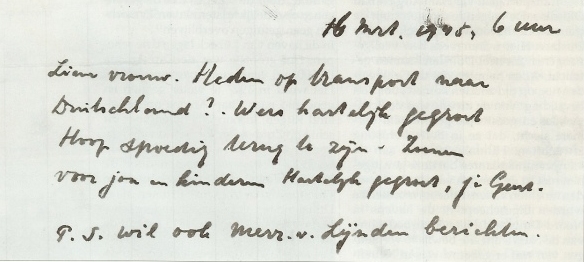 16 Mrt. 1945, 6 uur
Lieve vrouw. Heden op transport naar
Duitschland? Wees hartelijk gegroet
Hoop spoedig terug te zijn -
voor jou en kinderen Hartelijk gegroet, je Gent.
P.S. wil ook Mevr. v. Lijnden berichten.